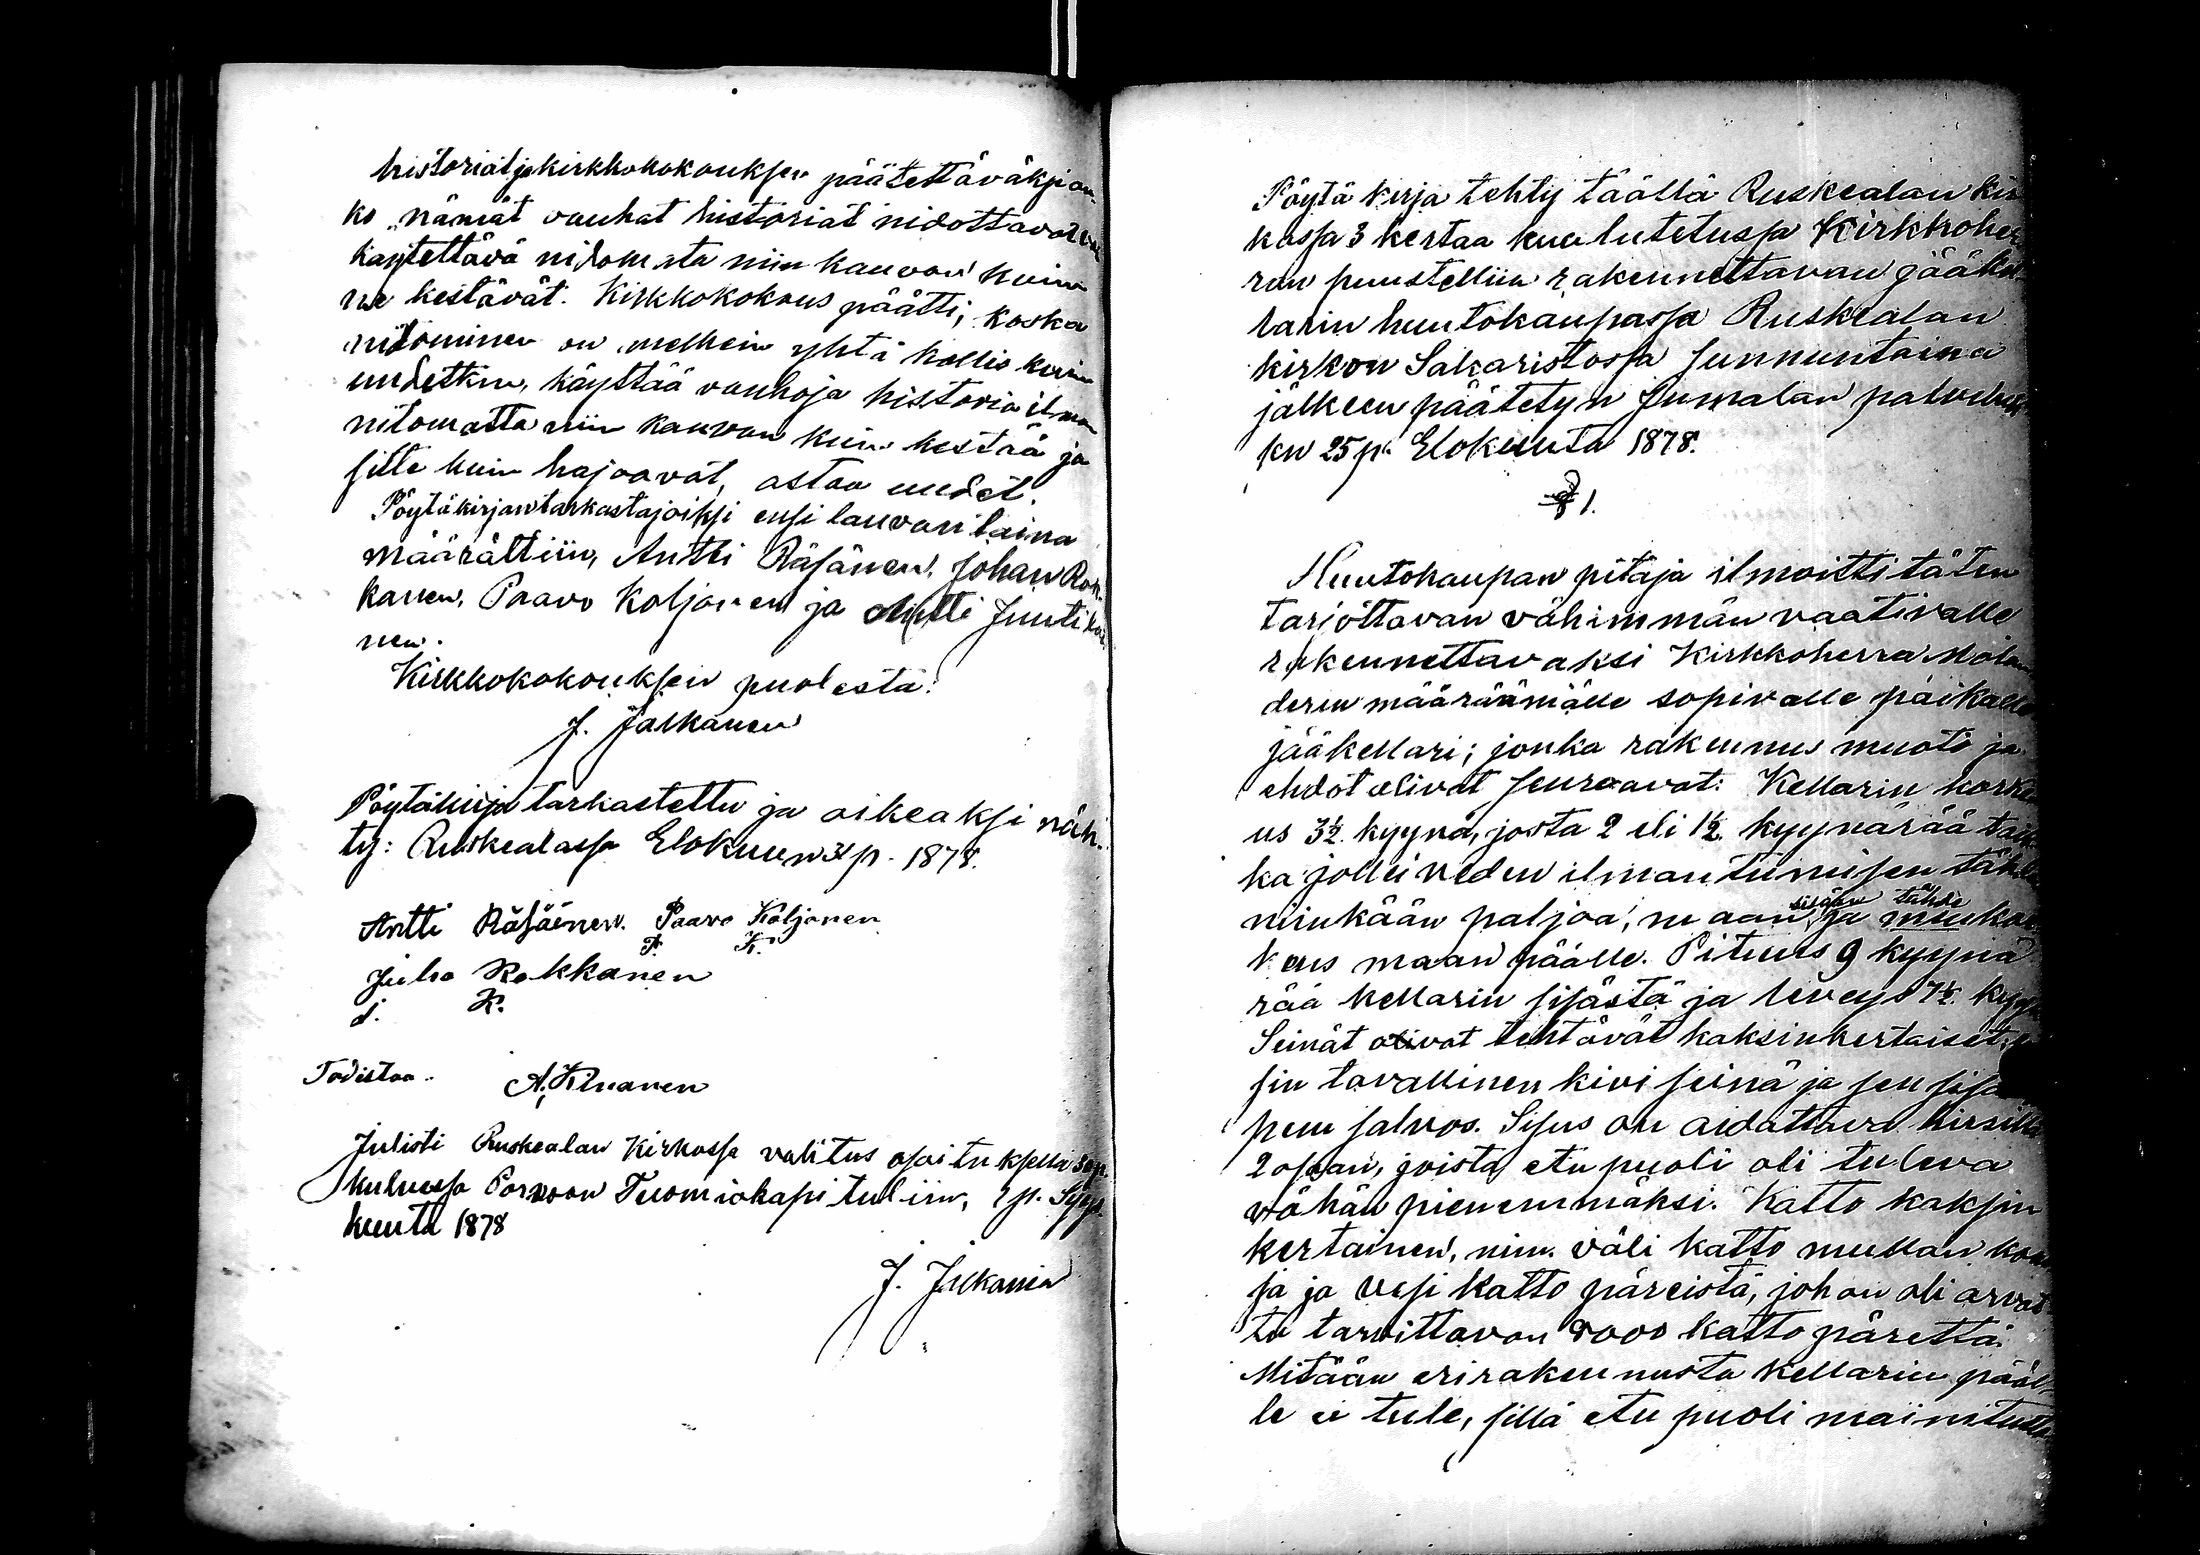 historiat ja kirkkokokouksen päätettäväksi on-
ko nämät vanhat historiat nidottavat
käytettävä nidomata niin kauvan kuin
ne kestävät. Kirkkokokous päätti, koska
nitominen on melkein yhtä kallis kuin
uudetkin, käyttää vanhoja historia ilman
nitomatta niin kauvan kuin kestää ja
sitte kuin hajoavat, ostaa uudet.
Pöytäkirjan tarkastajoiksi ensi lauvantaina
määrättiin, Antti Räsänen, Johan Rok-
kanen, Paavo Koljonen ja Antti Juutikai
nen.
Kirkkokokouksen puolesta:
J. Jalkanen
Pöytäkirja tarkastettu ja oikeaksi näh-
ty: Ruskealassa Elokuun 31 p. 1878.
Antti Räsäinen. Paavo Koljonen
P. K.
Juho Rokkanen
J. R.
Todistaa. A. Kinanen
Julisti Ruskealan Kirkossa valitus osoituksella 30 p.
kuluessa Porvoon Tuomiokapituliin, 1 p. Syys
kuuta 1878
J. Jalkanen
Pöytäkirja tehty täällä Ruskealan kir
kossa 3 kertaa kuulutetussa Kirkkoher
ran puustelliin rakennettavan jääkel
larin huutokaupassa Ruskealan
kirkon Sakaristossa sunnuntaina
jälkeen päätetyn Jumalan palveluk
sen 25 p. Elokuuta 1878.
§ 1.
Huutokaupan pitäjä ilmoitti täten
tarjottavan vähimmän vaativalle
rakennettavaksi Kirkkoherra Molan
derin määräämälle sopivalle paikalle
jääkellari; jonka rakennus muoto ja
ehdot olivat seuraavat: Kellarin korke
us 3½ kyynä, josta 2 eli 1½ kyynärää taik
ka jollei veden ilmantumisen tähden
niinkään paljoa, maan sisään ja
kaus maan päälle. Pituus 9 kyynä
rää kellarin sisästä ja leveys 7½ kyyn
Seinät olivat tehtävät kaksinkertaiset,
sin tavallinen kivi seinä ja sen sisä
puu salvos. Sisus on aidattava hirsillä
2 osaan, joista etu puoli oli tuleva
vähän pienemmäksi. Katto kaksin
kertainen, nim. väli katto mullan kan
sa ja vesi katto päreistä, johon oli arvat
tu tarvittavan 9000 katto pärettä.
Mitään eri rakennusta kellarin pääl
le ei tule, sillä etu puoli mainitulla